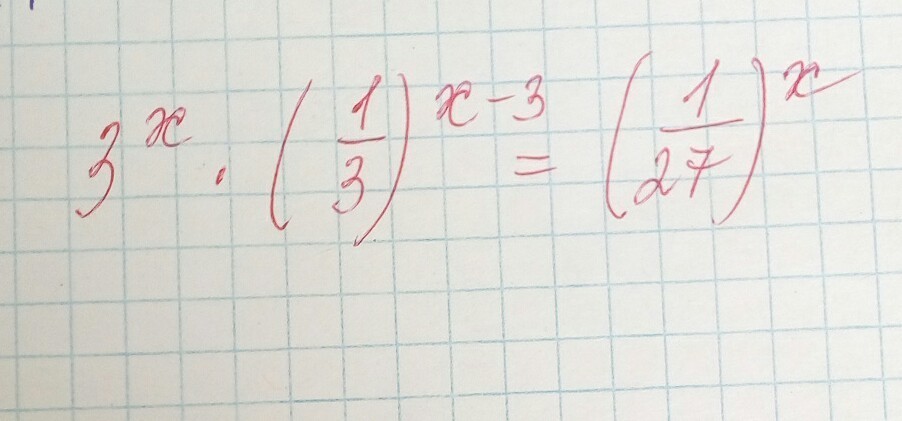 3^x · (1/3)^(x-3) = (1/27)^x